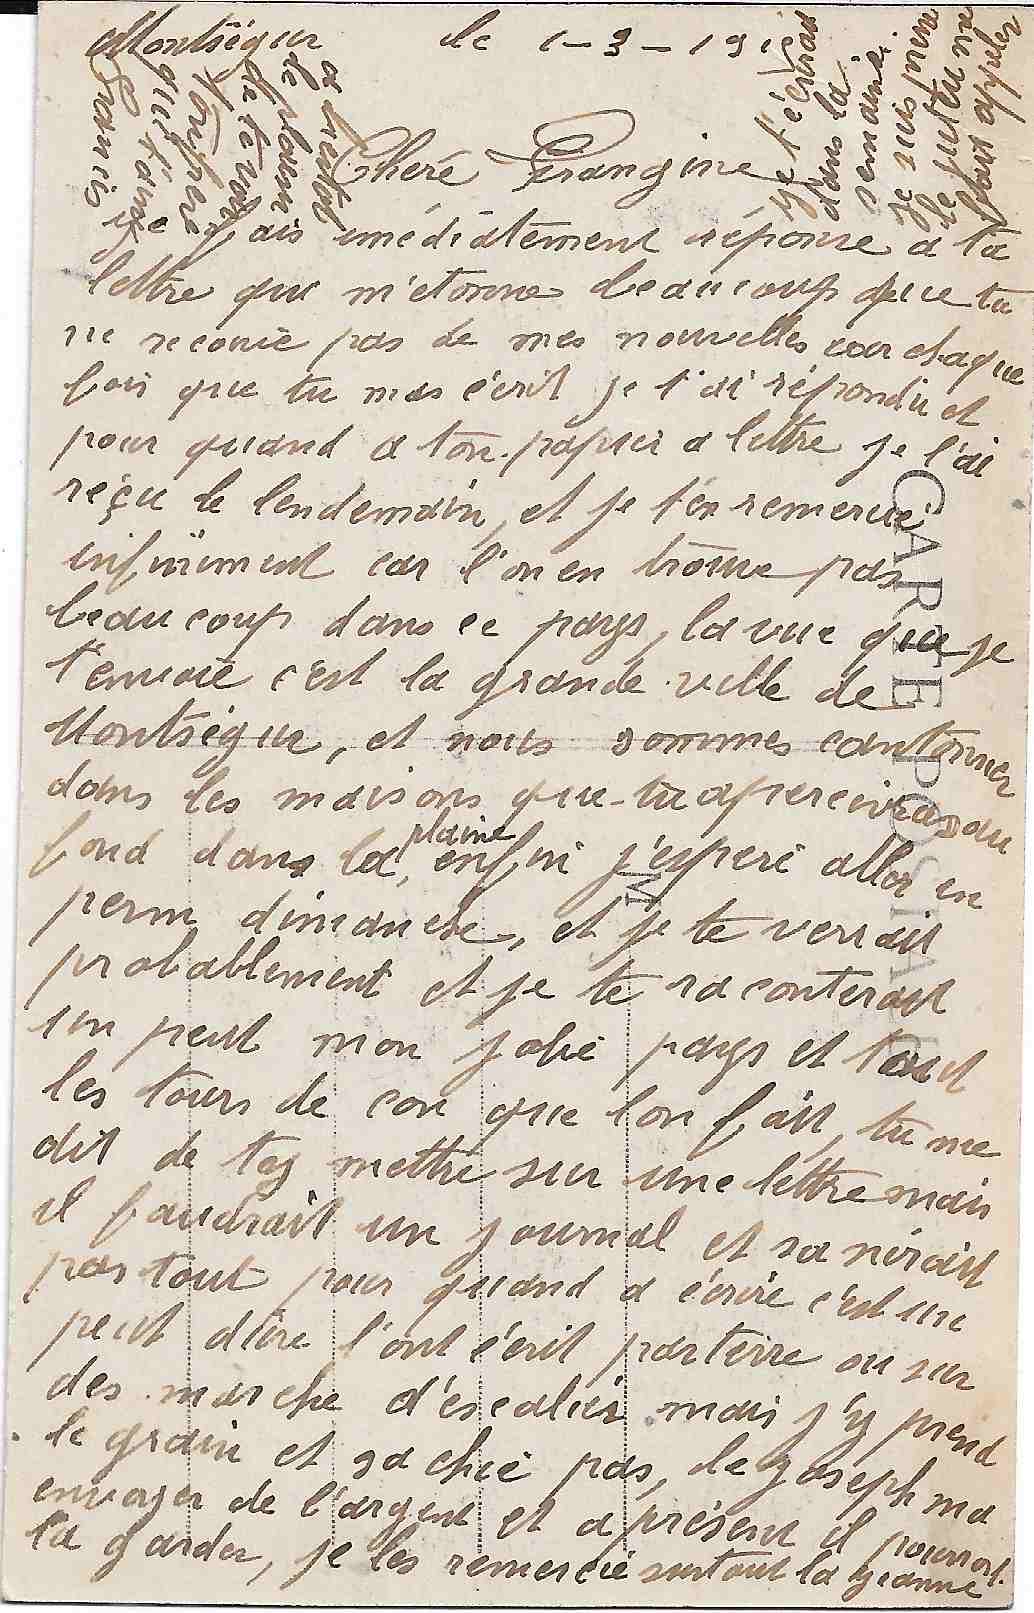 Montségur le 1-3-191
Chère Frangine
Je fais imédiatement réponse a ta
lettre qui m'etonne beaucoup que tu
ne reçoive pas de mes nouvelles car chaque
fois que tu mas écrit je t'ai répondu et
pour quand a ton papier a lettre je l'ai
reçu le lendemain, et je t'en remercie
infiniment car l'on en trouve pas
beaucoup dans ce pays, la vue que je
t'envoie c'est la grande ville de
Montségur, et nous sommes cantonner
dans les maisons que tu apercevras au
fond dans la plaine, enfin j'espere aller en
perm dimanche, et je te verrait
probablement et je te raconterait
un peut mon jolie pays et tout
les tours de con que lon fait, tu me
dit de toy mettre sur une lettre mais
il faudrait un journal et sa nirait
pas tout pour quand a écrire c'est un
peut dure l'ont écrit parterre ou sur
des marche d'escalier mais j'y prend
le grain et sa chie pas, le Joseph ma
envoyer de l'argent et a présent il pourront
la garder, je les remercie surtout la
a bientot
le plaisir
de te voir
Ton frere
qui t'aime
Francis
Je t'écrirai
dans la
semaine.
je suis
le
faut appeler
CARTE POSTALE
M